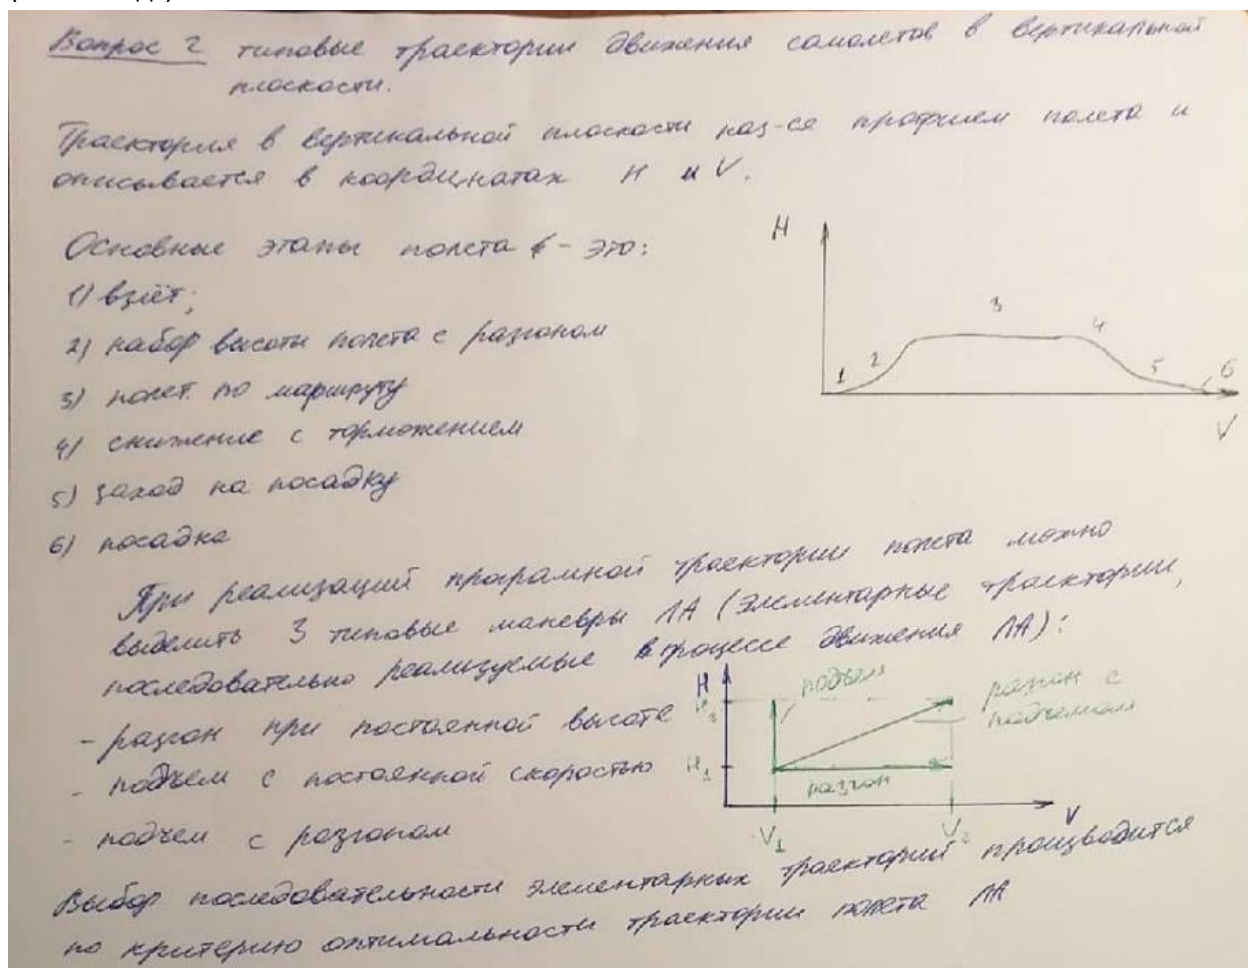 Вопрос 2 типовые траектории движения самолетов в вертикальной
плоскости.
Траектория в вертикальной плоскости наз-ся профилем полета и
описывается в координатах H и V.
Основные этапы полета - это:
1) взлёт;
2) набор высоты полета с разгоном
3) полет по маршруту
4) снижение с торможением
5) заход на посадку
6) посадка
H
1 2 3 4 5 6
V
При реализаций програмной траектории полета можно
выделить 3 типовые маневры ЛА (элементарные траектории,
последовательно реализуемые в процессе движения ЛА):
- разгон при постоянной высоте
- подъем с постоянной скоростью
- подъем с разгоном
H
H₂
подъем
разгон с
подъемом
H₁
разгон
V₁ V₂ V
Выбор последовательности элементарных траекторий производится
по критерию оптимальности траектории полета ЛА